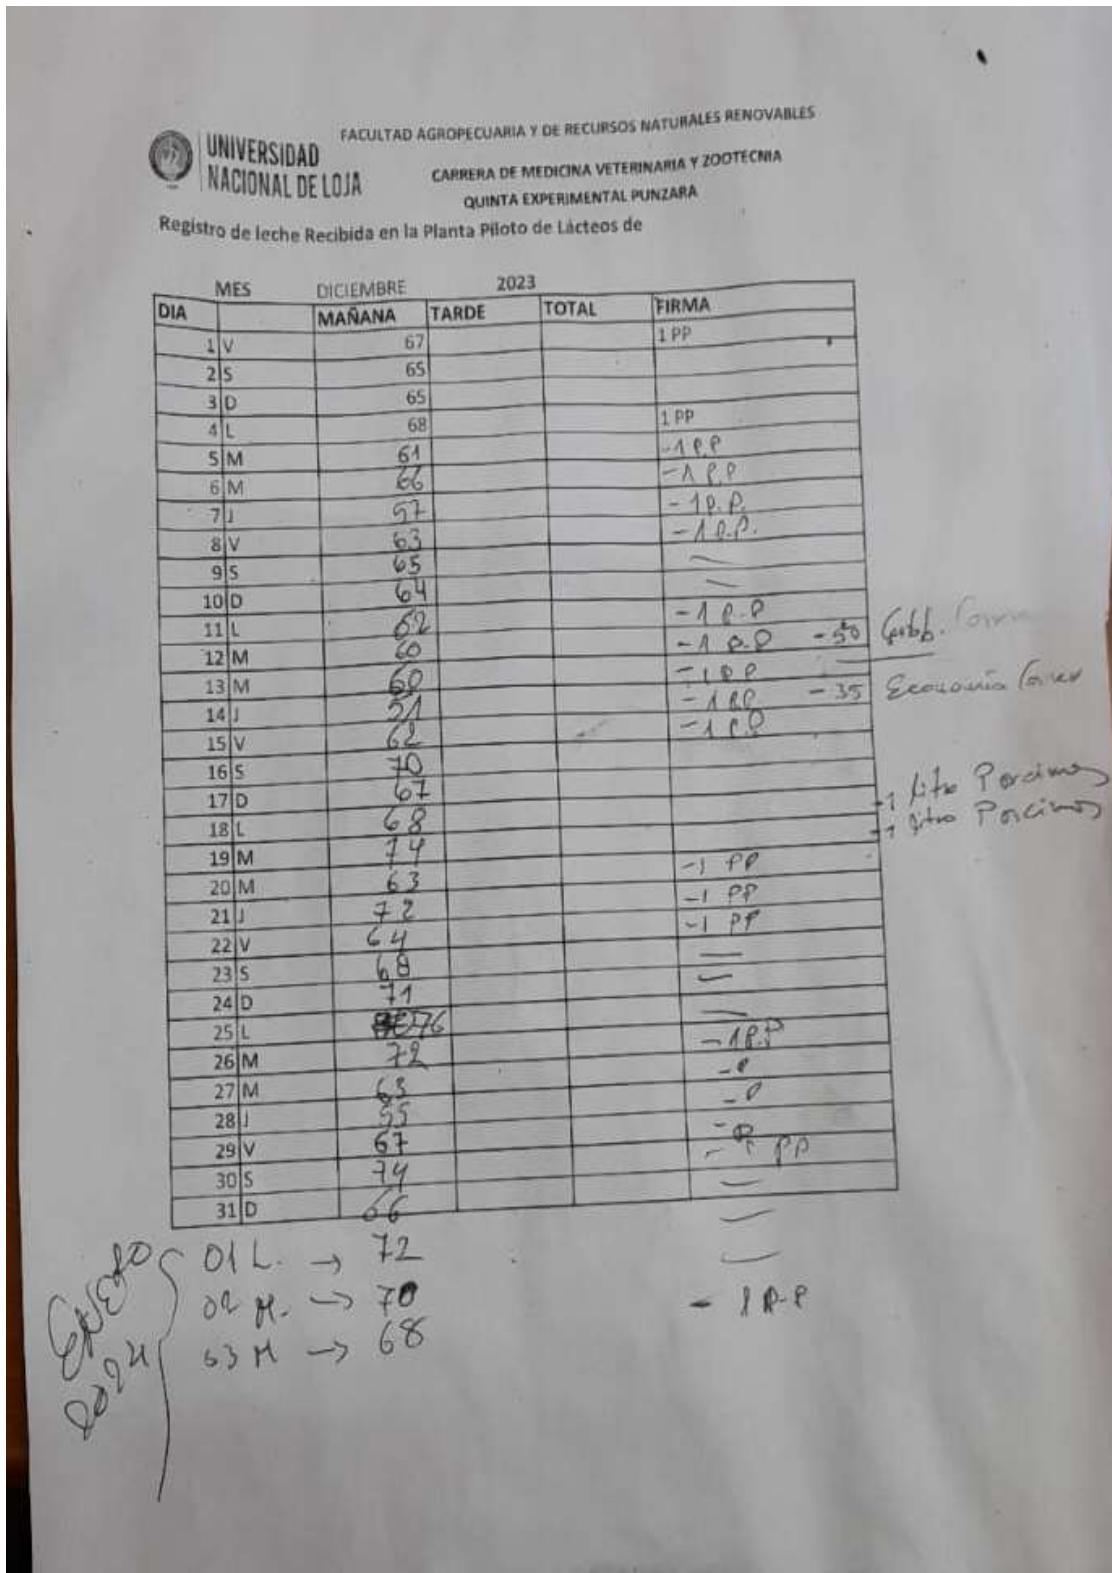 FACULTAD AGROPECUARIA Y DE RECURSOS NATURALES RENOVABLES
UNIVERSIDAD
NACIONAL DE LOJA
CARRERA DE MEDICINA VETERINARIA Y ZOOTECNIA
QUINTA EXPERIMENTAL PUNZARA
Registro de leche Recibida en la Planta Piloto de Lácteos de
MES DICIEMBRE 2023
DIA MAÑANA TARDE TOTAL FIRMA
1 V 67 1 PP
2 S 65
3 D 65
4 L 68 1 PP
5 M 61 -1 P.P
6 M 66 -1 P.P
7 J 57 - 1 P.P.
8 V 63 - 1 P.P.
9 S 65 —
10 D 64 —
11 L 62 - 1 P.P
12 M 60 - 1 P.P - 50
13 M 60 - 1 P P
14 J 51 - 1 P.P. - 35 Economía
15 V 62 - 1 P.P
16 S 70
17 D 67
18 L 68 -1 litro Porcinos
19 M 74 -1 litro Porcinos
20 M 63 -1 PP
21 J 72 -1 PP
22 V 64 -1 PP
23 S 68 —
24 D 71 —
25 L 76 —
26 M 72 - 1 P.P
27 M 63 - P
28 J 55 - P
29 V 67 - PP
30 S 74 —
31 D 66 —
ENERO 2024
01 L. → 72 —
02 M. → 70 - 1 P.P
03 M → 68